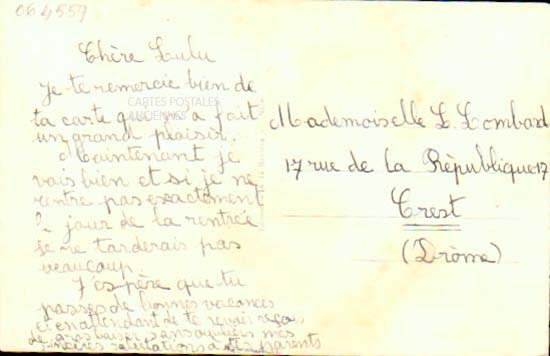 064559
Chère Lulu
Je te remercie bien de
ta carte qui m'a fait
un grand plaisir.
Maintenant je
vais bien et si je ne
rentre pas exactement
le jour de la rentrée
je ne tarderais pas
beaucoup.
J'éspère que tu
passes de bonnes vacances
et en attendant de te revoir reçois
de gros baisers sans oublier mes
sincères salutations à tes parents
CARTES POSTALES
ANCIENNES
Mademoiselle L. Lombard
17 rue de la République 17
Crest
(Drôme)